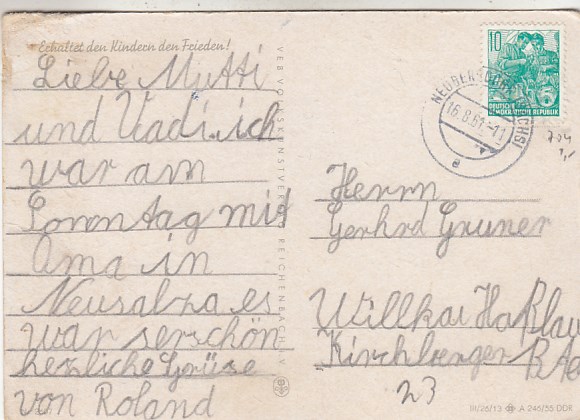 Erhaltet den Kindern den Frieden!
Liebe Mutti
und Vadi, ich
war am
Sonntag mit
Oma in
Neusalza es
war serschön
hezliche Grüse
von Roland
VEB VOLKSKUNSTVERLAG REICHENBACH I. V.
10
DEUTSCHE
DEMOKRATISCHE REPUBLIK
16.8.61.-11
a
704
1,-
Herrn
Gerhrd Gruner
Willkau Haßlau
Kirchberger
23
III/26/13 A 246/55 DDR